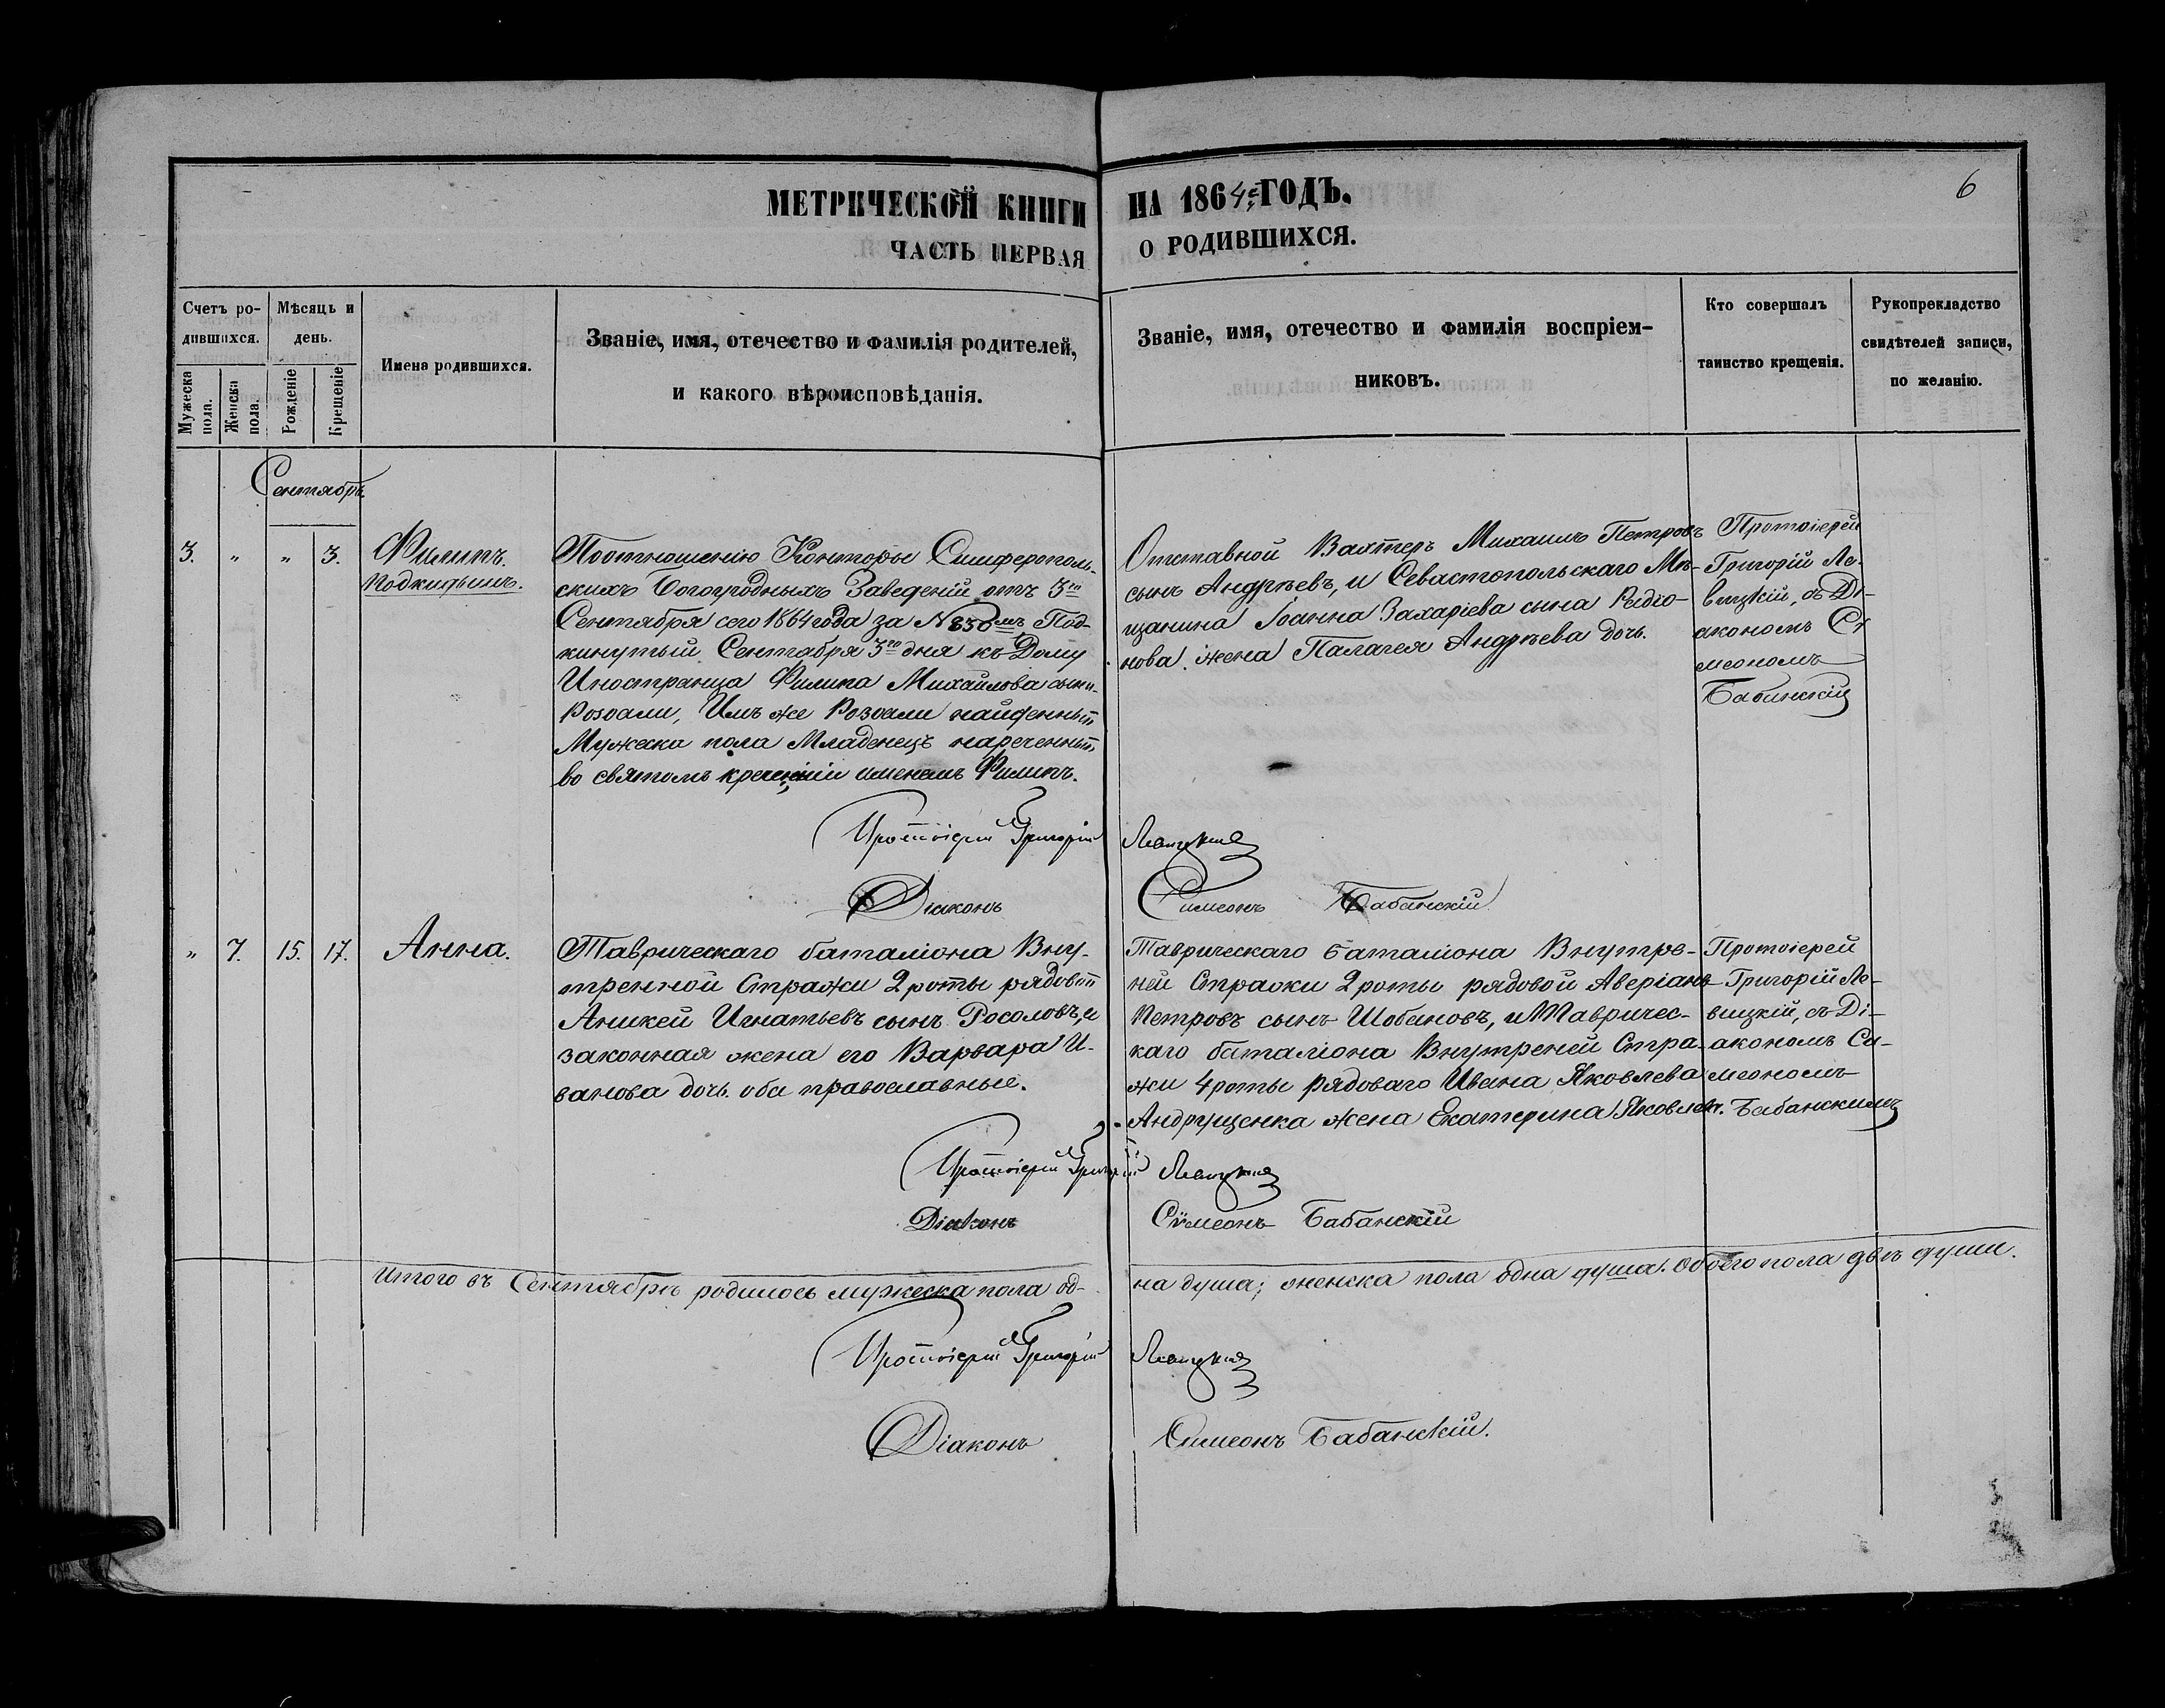 МЕТРИЧЕСКОЙ КНИГИ НА 1864й ГОДЪ.
6
ЧАСТЬ ПЕРВАЯ О РОДИВШИХСЯ.
Счетъ ро-
дившихся.
Мужеска пола.
Женска пола.
Мѣсяцъ и
день.
Рожденіе
Крещеніе
Имена родившихся.
Званіе, имя, отечество и фамилія родителей,
и какого вѣроисповѣданія.
Званіе, имя, отечество и фамилія воспріем-
никовъ.
Кто совершалъ
таинство крещенія.
Рукопрекладство
свидѣтелей записи,
по желанію.
Сентябрь.
3. " " 3.
Филипъ.
Подкидышъ.
Поотношенію Конторы Симферополь-
скихъ Богоугодныхъ Заведеній отъ 3го
Сентября сего 1864 года за № Под-
кинутый Сентября 3го дня къ Дому
Иностранца Филипа Михайлова сына
Розоали, Имъ же Розоали найденный
Мужеска пола Младенецъ нареченный
во святомъ крещеніи именемъ Филипъ.
Отставной Вахтеръ Михаилъ Петровъ
сынъ Андрѣевъ, и Севастопольскаго Мѣ-
щанина Іоанна Захаріева сына Редіо-
нова жена Палагея Андрѣева дочь.
Протоіерей
Григорій Ле-
вицкій, съ Ді-
акономъ Си
меономъ
Бабинскій
Протоіерей Григорій Левицкій
Діаконъ Симеонъ Бабанскій
" 7. 15. 17. Анна.
Таврическаго баталіона Вну-
тренной Стражи 2 роты рядовой
Аникей Игнатьевъ сынъ Росоловъ, и
законная жена его Варвара И-
ванова дочь. оба православные.
Таврическаго баталіона Внутре-
ней Стражи 2 роты рядовой Аверіанъ
Петровъ сынъ Шобановъ, и Тавричес-
каго баталіона Внутреней Стра-
жи 4 роты рядоваго Ивана Яковлева
Андрущенка жена Екатерина Яковлев.
Протоіерей
Григорій Ле-
вицкій, съ Ді-
акономъ Си-
меономъ
Бабанскимъ
Протоіерей Григорій Левицкій
Діаконъ Сѵмеонъ Бабанскій
Итого въ Сентябрѣ родилось мужеска пола од- на душа; женска пола одна душа. Обоего пола двѣ души.
Протоіерей Григорій Левицкій
Діаконъ Симеонъ Бабанскій.